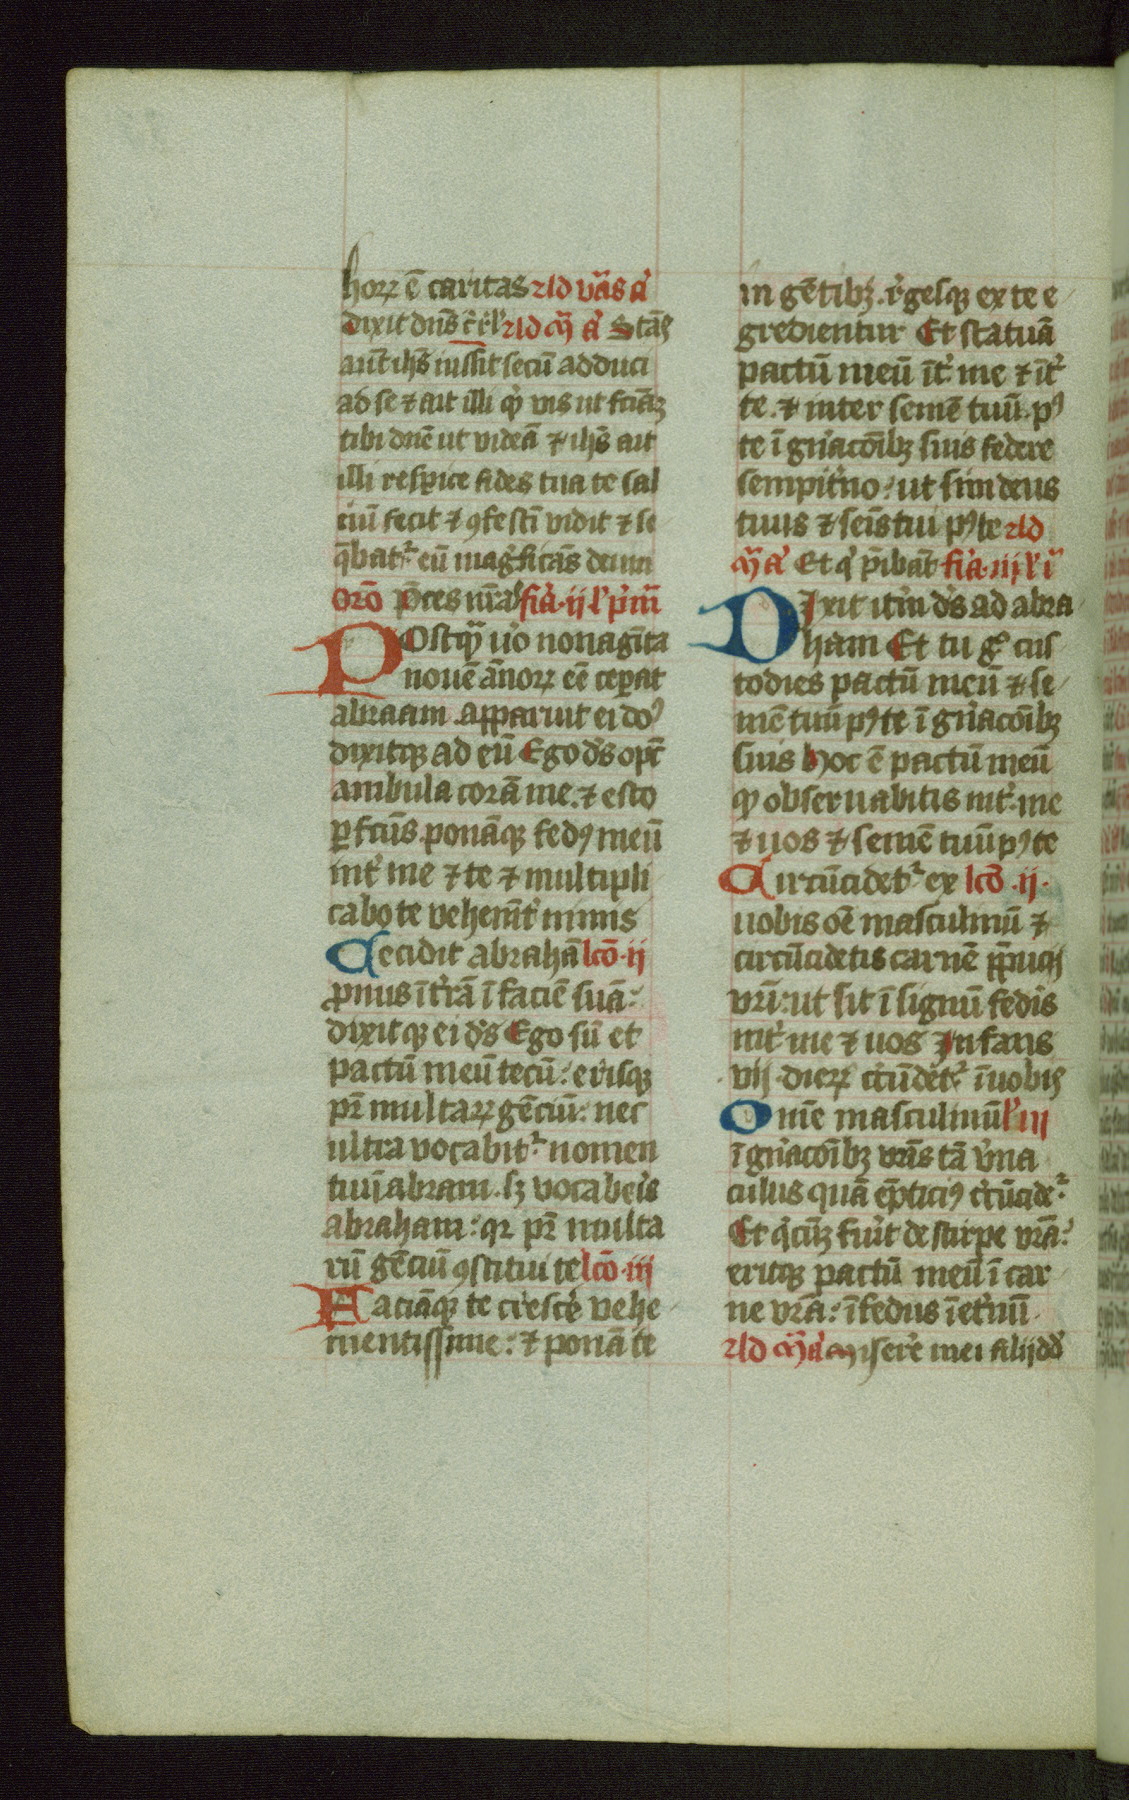 horꝝ ē caritas rld vr̄as a̾
Dixit dn̄s rld a̾ Stās
aūt ihs̄ iussit secū adduci
ad se ⁊ ait illi qͥ vis ut fciāꝫ
tibi dn̄e ut videā ⁊ ihs̄ ait
illi respice fides tua te sal
uū fecit ⁊ ꝯfestī vidit ⁊ se
q̄batͬ eū mag̾ficās deum
Orō p̄ces nr̄as fīa ii l' p̾m̄
POstqͣ uͦo nonagīta
nouē ānorꝝ eē ceꝑat
abraam apparuit ei doꝰ
dixitqꝫ ad eū Ego ds̄
ambula corā me. ⁊ esto
ꝑfc̄us. ponāqꝫ fedꝰ meū
int̾ me ⁊ te ⁊ multipli
cabo te vehem̄t̾ nimis
Cecidit abrahā lcō ii
ꝓnus ī t̾rā ī faciē suā.
dixitqꝫ ei ds̄ Ego sū et
pactū meū tecū: erisqꝫ
pr̄ multarꝝ gēciū: nec
ultra vocabitͬ nomen
tuū abram. sꝫ vocabe̾is
abraham: qꝛ pr̄ multa
rū gēciū ꝯstitui te lcō iii
Faciāqꝫ te cresce̾ vehe
mentissime: ⁊ ponā te
in gētibꝫ. r̾gesqꝫ ex te e
gredientur Et statuā
pactū meū īt̾ me ⁊ īt̾
te. ⁊ inter semē tuū pꝰ
te ī gn̾acōibꝫ suis federe
sempit̾no: ut sim deus
tuus ⁊ seīs tui pꝰ te rld
a̾ Et qͥ p̄ibāt fīa iii l' i
DIxit it̾m ds̄ ad abra
ham Et tu gͦ cus
todies pactū meū ⁊ se
mē tuū pꝰ te ī gn̾acōibꝫ
suis Hoc ē pactū meū
qͦ obseruabitis int̾ me
⁊ uos ⁊ semē tuū pꝰ te
Circūcidetͬ ex lcō ii
uobis oē masculinū ⁊
circūcidetis carnē p̄pucii
vr̄i: ut sit ī signū fede̾is
int̾ me ⁊ uos Infans
viii dierꝝ c̾cūcidetͬ ī uobis
Omē masculinū l' iii
ī gn̾acōibꝫ vr̄is tā v̾na
culus quā ēpticiꝰ c̾cūcideͬ
Et qͥcūqꝫ fu̾it de stirpe vr̄a:
eritqꝫ pactū meū ī car
ne vr̄a: ī fedus īet̾nū
rld a̾ Misere̾ mei filii dd̄